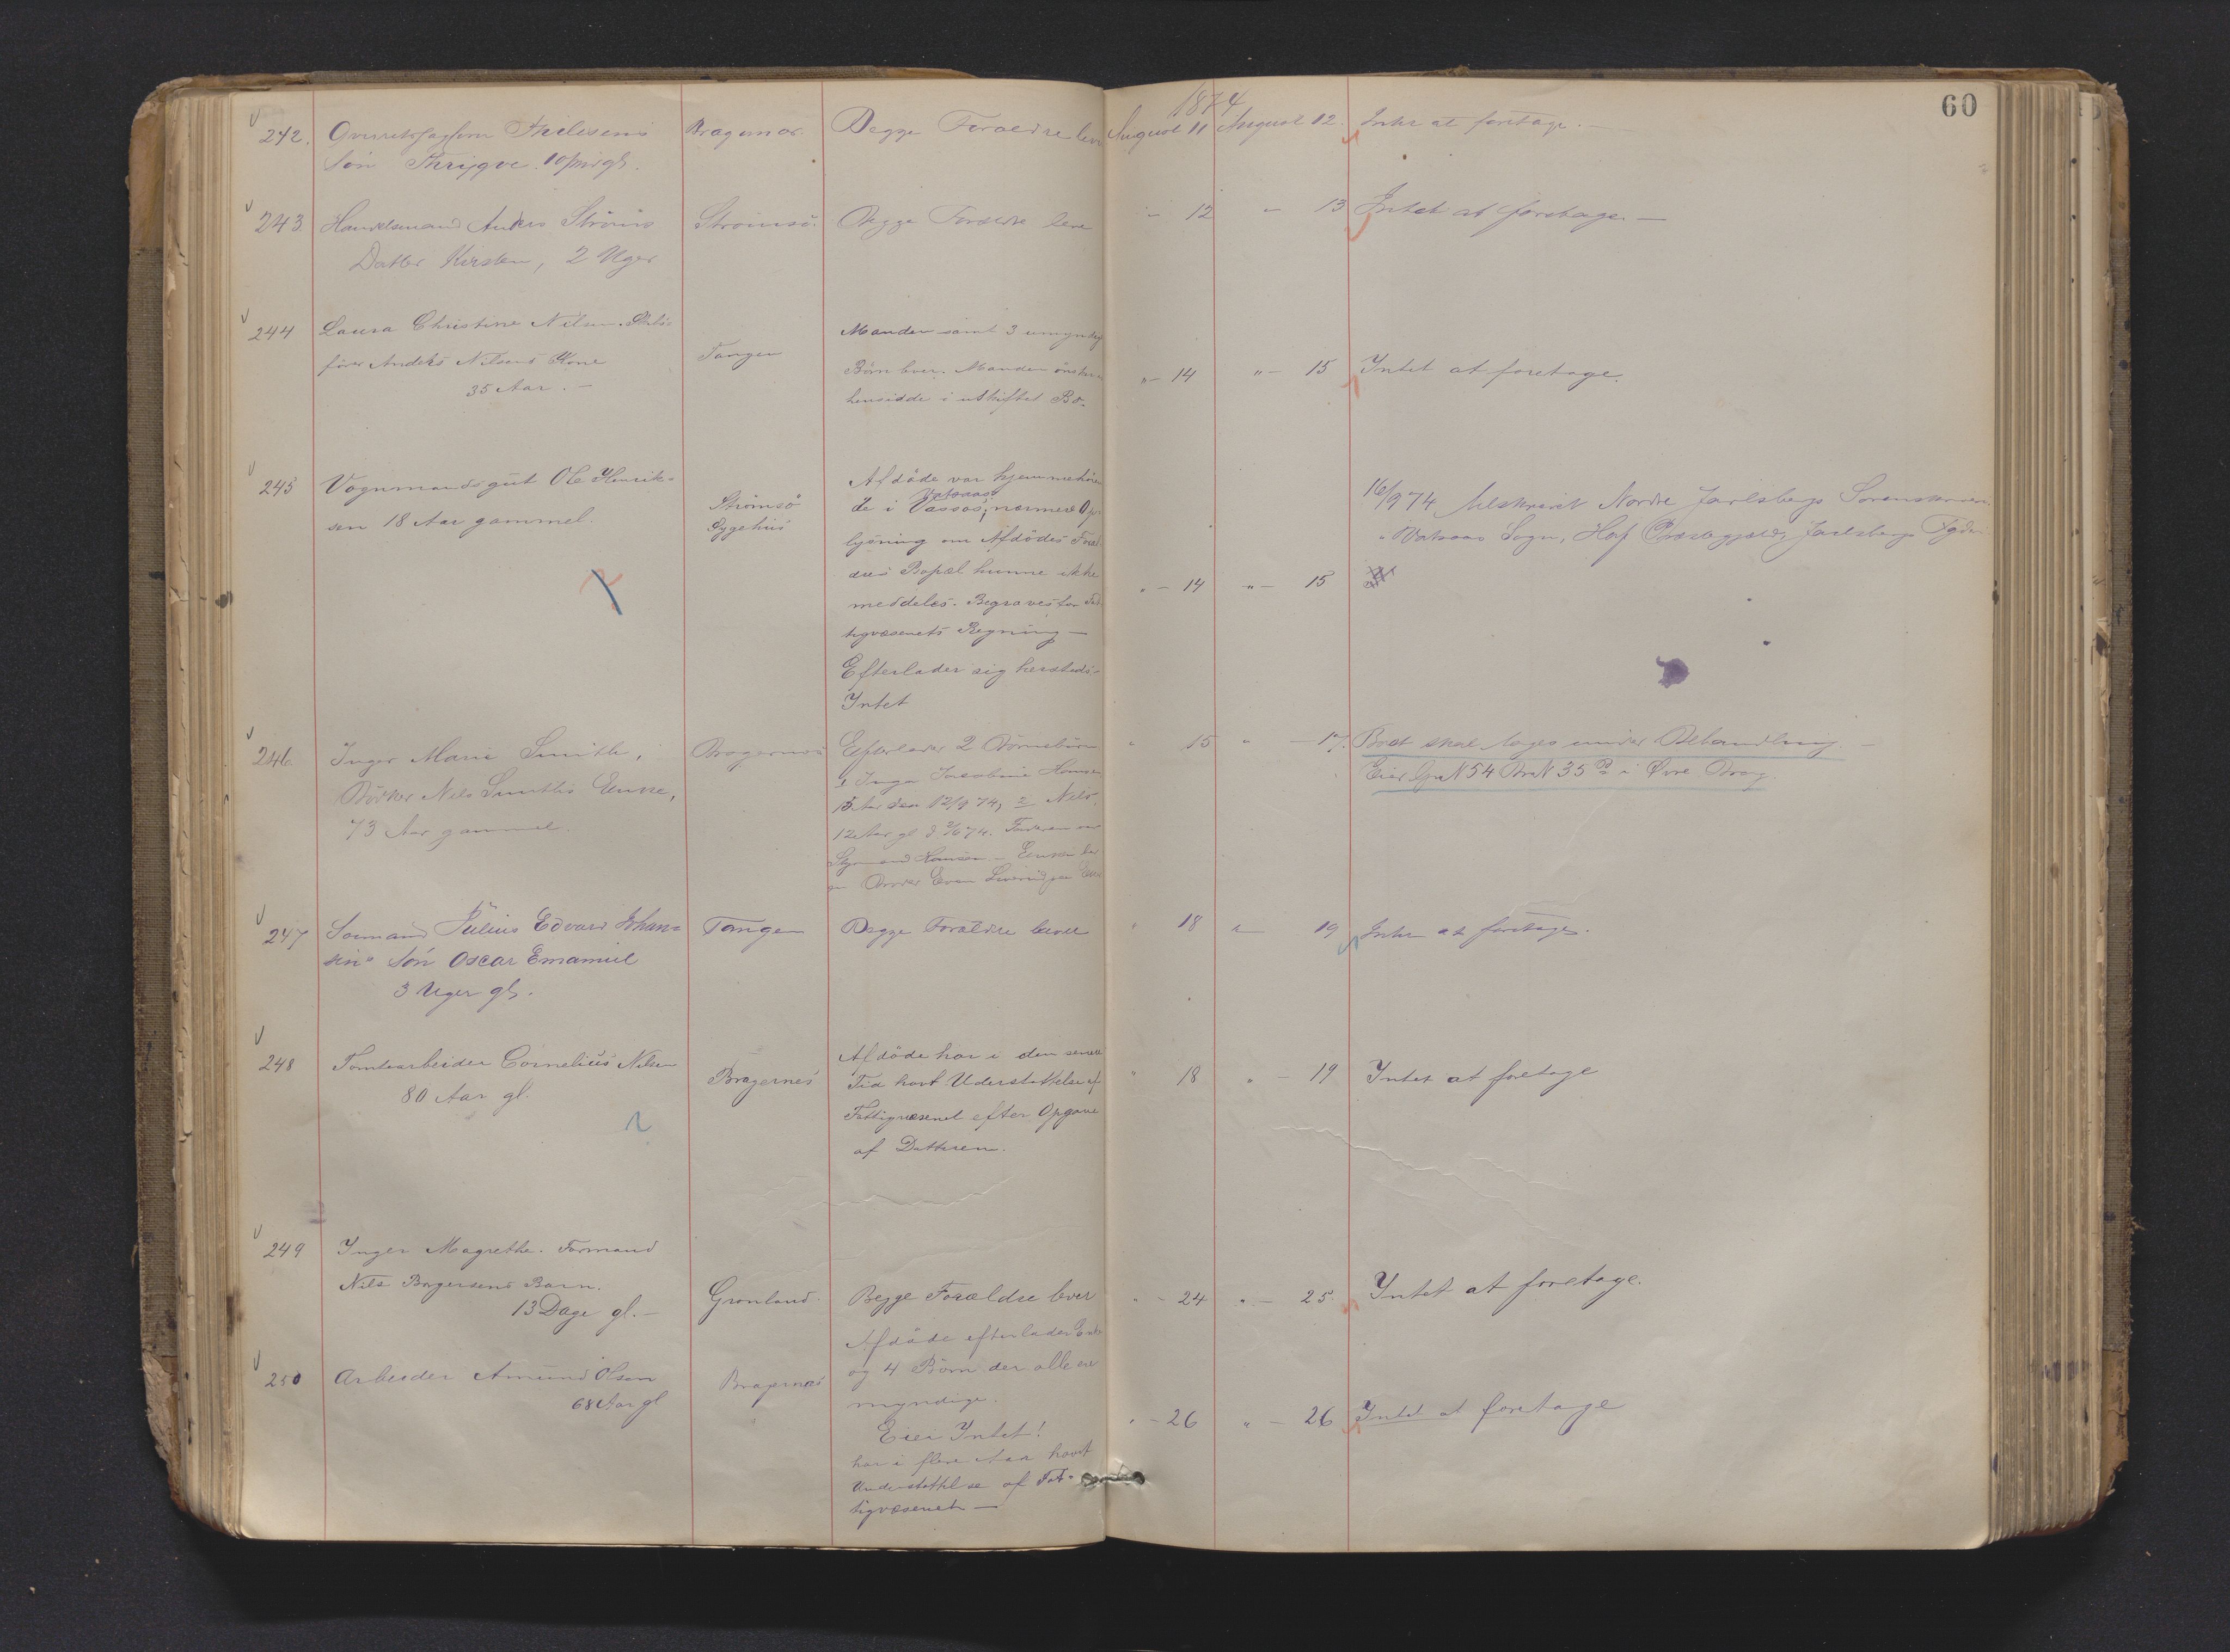 60
1874
242. Søn Thrygve. 10 gl. Bragernæs Begge Forældre leve August 11 August 12. Intet at foretage. —
243 Handelsmand Anders Ströms Strömsö. Begge Forældre leve " 12 " 13 Intet at foretage. —
Datter Kirsten, 2 Uger
244 Laura Christine Nilsen. Skibs-
fører Anders Nilsens Kone
35 Aar. —
Tangen
Manden samt 3 umyndige
Börn lever. Manden önsker at
hensidde i uskiftet Bo.
" — 14 " — 15 Intet at foretage.
245 Vognmandsgut Ole Henrik-
sen 18 Aar gammel.
Strömsö
Sygehus
Afdöde var hjemmehören-
de i Vassås; nærmere Op-
Vatsaas
lysning om Afdödes Foræl-
dres Bopæl kunne ikke
meddeles. Begraves for Fat-
tigvæsenets Regning —
Efterlader sig hersteds-
Intet
" — 14 " — 15
16/9 74 Tilskrevet Nordre Jarlsbergs Sorenskriveri.
Vatsaas Sogn, Hof Præstegjæld, Jarlsbergs Fgdr.
246 Inger Marie Smith,
Bödker Nels Smiths Enke,
73 Aar gammel.
Bragernes
Efterlader 2 Börnebörn
1 Inga Jacobine Hansen
15 Aar den 12/9 74, 2 Nils
12 Aar gl d 2/6 74. Faderen var
Styrmand Hansen. — Enken har
en Broder Even
" 15 " — 17. Boet skal tages under Behandling. —
Eier Gr N 54 Br N 35 i Øvre Brag.
247 Sömand Julius Edvard Johan-
sens Sön Oscar Emanuel
3 Uger gl.
Tangen Begge Forældre lever " 18 " 19 Intet at foretage.
248 Tomtearbeider Cornelius Nilsen
80 Aar gl.
Bragernes
Afdöde har i den senere
Tid havt Understøttelse af
Fattigvæsenet efter Opgave
af Datteren.
" 18 " — 19 Intet at foretage
249 Inger Magrethe. Formand
Nils Borgersens Barn.
13 Dage gl. —
Grønland. Begge Forældre lever " — 24 " — 25. Intet at foretage.
250 Arbeider Amund Olsen
68 Aar gl
Bragernæs
Afdöde efterlader Enke
og 4 Börn der alle ere
myndige.
Eier Intet!
har i flere Aar havt
Understøttelse af Fat-
tigvæsenet —
" — 26 " — 26 Intet at foretage